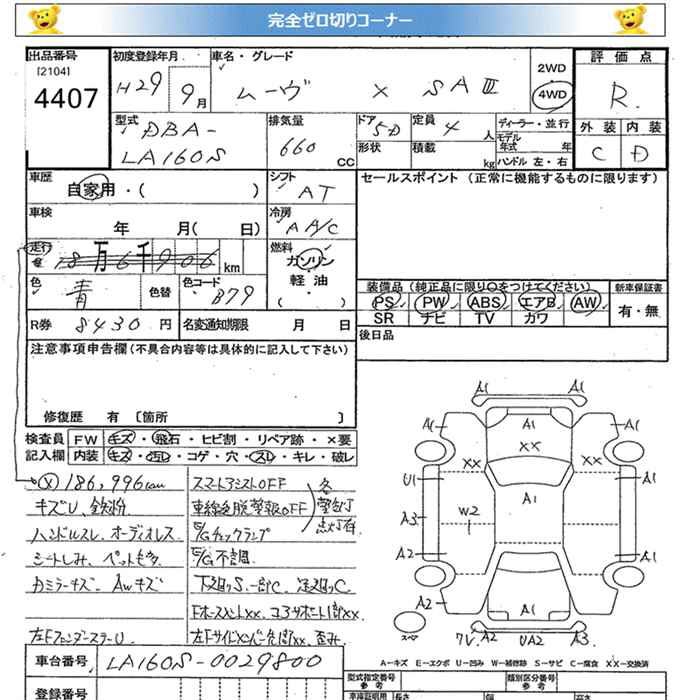 完全ゼロ切りコーナー
出品番号
[2104]
4407
初度登録年月
H29 9月
車名・グレード
ムーヴ X SAⅢ
2WD
4WD
評価点
R.
型式
DBA-
LA160S
排気量
660
CC
ドア
5D
定員
4
人
形状
積載
kg
ディーラー・並行
モデル
年式 年
ハンドル 左・右
外装 内装
C D
車歴
自家用・( )
シフト
AT
セールスポイント (正常に機能するものに限ります)
車検
年 月( 日)
冷房
AA/C
走行
18万6千906 km
燃料
ガソリン
軽油
・( )
色
青
色替
色コード
B79
装備品(純正品に限り○をつけてください)
PS PW ABS エアB AW
SR ナビ TV カワ
新車保証書
有・無
R券 8430円
名変通知期限 月 日
後日品
注意事項申告欄(不具合内容等は具体的に記入して下さい)
修復歴 有 [箇所 ]
検査員
記入欄
FW キズ・飛石・ヒビ割・リペア跡・×要
内装 キズ・汚レ・コゲ・穴・スレ・キレ・破レ
186,996km
キズU、鉄粉
ハンドルスレ、オーディオレス
シートしみ、ペットモタ
カミラーキズ、AWキズ
左FフェンダーステーU
スマートアシストOFF
車線逸脱警報OFF
E/Gチェックランプ
各
警告灯
点灯有
E/G不調
下廻りS、一部C、足廻りC
FホースメントXX、コアサポート1部XX
左Fサイドメンバー先端XX、歪み
A1 A1
A1 A1
XX
XX XX
U1 A1 A1
A3 W2 A1
A2 A1
A2 A1 A1
スペア
7V A2 UA2 A3
車台番号 LA160S-0029800
A-キズ E-エクボ U-凹み W-補修跡 S-サビ C-腐食 XX-交換済
登録番号
型式指定番号
参考
類別区分番号
参考
長さ
幅
高さ